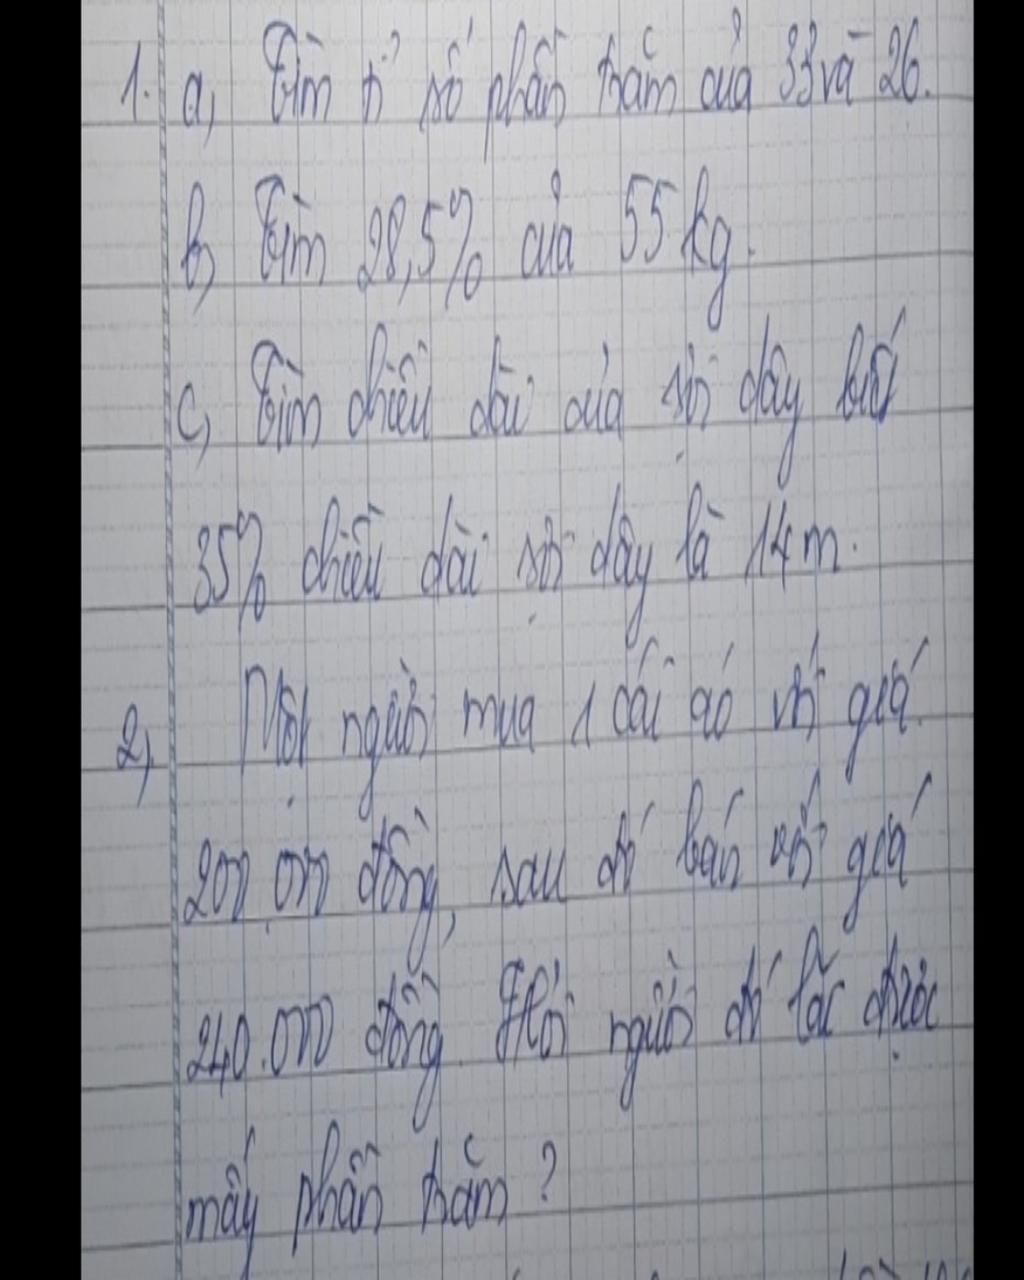 1. a, Tìm tỉ số phần trăm của 33 và 26.
b, Tìm 28,5% của 55 kg.
c, Tìm chiều dài của sợi dây biết
35% chiều dài sợi dây là 14 m.
2, Một người mua 1 cái áo với giá
200.000 đồng, sau đó bán với giá
240.000 đồng. Hỏi người đó lãi được
mấy phần trăm?